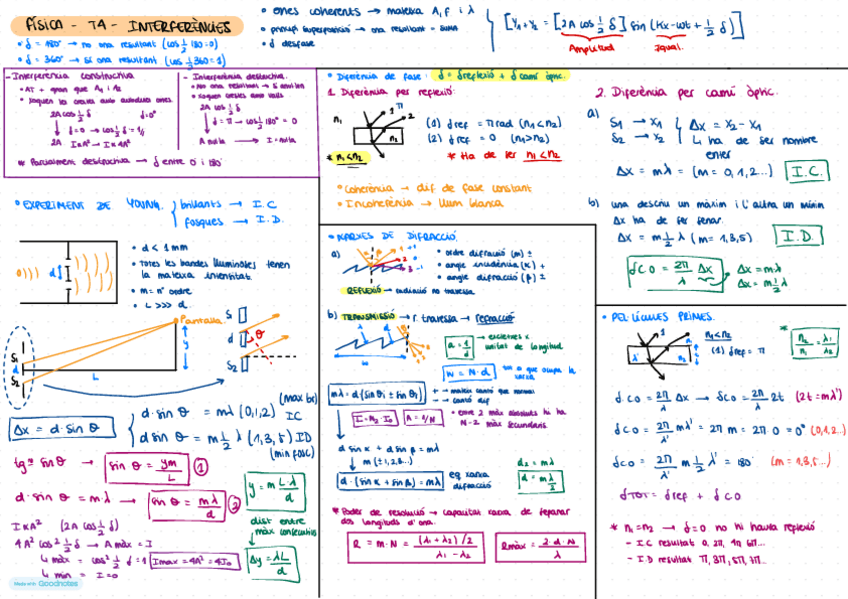 FÍSICA - T4 - INTERFERÈNCIES
• ones coherents → mateixa A, f i λ
• principi superposició → ona resultant = suma
• δ desfase
[Y₁+Y₂ = [2A cos ½ δ] sin (Kx - ωt + ½ δ)]
Amplitud
Igual.
• δ = 180° → no ona resultant (cos ½ 180 = 0)
• δ = 360° → sí ona resultant (cos ½ 360 = 1)
- Interferència constructiva
• AT + gran que A₁ i A₂
2A cos ½ δ
δ = 0°
2A I∝A² → I∝4A²
* Parcialment destructiva → δ entre 0 i 180
- Interferència destructiva
2A cos ½ δ
δ = π → cos ½ 180° = 0
A nul·la → I = nul·la
• Diferència de fase: δ = δreflexió + δ camí òptic.
1. Diferència per reflexió.
n₁
n₂
(1) δref = π rad (n₁<n₂)
(2) δref = 0 (n₁>n₂)
* n₁<n₂
* Ha de ser n₁<n₂
• Coherència → dif. de fase constant
• Incoherència → llum blanca
2. Diferència per camí òptic.
a)
S₁ → x₁
S₂ → x₂
Δx = x₂ - x₁
↳ ha de ser nombre enter
Δx = mλ → (m = 0, 1, 2...) I.C.
b) una descriu un màxim i l'altra un mínim
Δx ha de ser senar.
Δx = m ½ λ (m = 1, 3, 5) I.D.
δCO = 2π/λ Δx
Δx = mλ
Δx = m ½ λ
• EXPERIMENT DE YOUNG.
brillants → I.C
fosques → I.D.
• d < 1 mm
• Totes les bandes lluminoses tenen la mateixa intensitat.
• m = nº ordre
• L >>> d
Pantalla
S₁
d
S₂
L
y
θ
Δx = d · sin θ
d · sin θ = mλ (0,1,2) IC
(max br)
d sin θ = m ½ λ (1,3,5) ID
(min fosc)
tg ≈ sin θ → sin θ = ym/L ①
d · sin θ = m·λ → sin θ = mλ/d ②
y = m L·λ/d
dist entre màx consecutius
Δy = λL/d
I∝A² (2A cos ½ δ)
4A² cos² ½ δ → A màx = I
↳ màx = cos² ½ δ = 1 Imax = 4A² = 4I₀
↳ min = I = 0
• XARXES DE DIFRACCIÓ.
a)
• ordre difracció (m) ±
• angle incidència (α) +
• angle difracció (β) ±
REFLEXIÓ → radiació no travessa.
b) TRANSMISSIÓ → r. travessa → refracció
a = 1/d
unitat de longitud
W = N · d
mλ = d (sin θ₁ ± sin θ₂)
I = N² · I₀
• entre 2 màx absoluts hi ha N-2 màx secundaris
d sin α + d sin β = mλ
m (±1, 2, 3...)
d · (sin α + sin β) = mλ
eq xarxa difracció
* Poder de resolució → capacitat xarxa de separar dos longituds d'ona.
R = m·N = (λ₁ + λ₂)/2 / λ₁ - λ₂
Rmàx = 2·d·N/λ
• PEL·LÍCULES PRIMES.
n₁<n₂
(1) δref = π
n₂/n₁ = λ₁/λ₂
δCO = 2π/λ Δx → δCO = 2π/λ 2t (2t = mλ')
δCO = 2π/λ' mλ' = 2π m = 2π · 0 = 0° (0,1,2..)
δCO = 2π/λ' m ½ λ' = 180° (m = 1,3,5...)
δTOT = δref + δCO
* n₁=n₂ → δ = 0 no hi hauria reflexió
- I.C resultat 0, 2π, 4π, 6π...
- I.D resultat π, 3π, 5π, 7π...
Made with Goodnotes